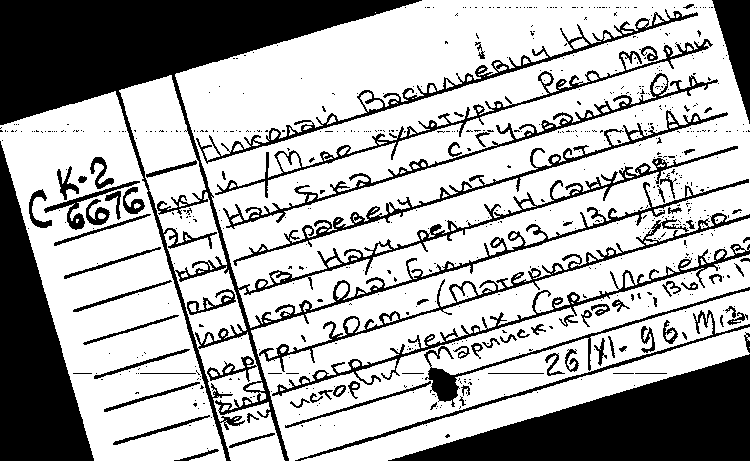 Николай Василиевич Николь-
ский / М-во культуры Респ. Марий
Эл, Нац. б-ка им. С.Г. Чавайна, Отд.
нац. и краеведч. лит.; Сост. Г.Н. Ай-
платов; Науч. ред. К.Н. Сануков.-
Йошкар-Ола: Б.и., 1993.-13с., [1]л.
портр.; 20см.-(Материалы к
библиогр. ученых. Сер., Исследова-
тели истории Марийск. края"; Вып. 1
С К-2
6676
26/XI-96. М.з.